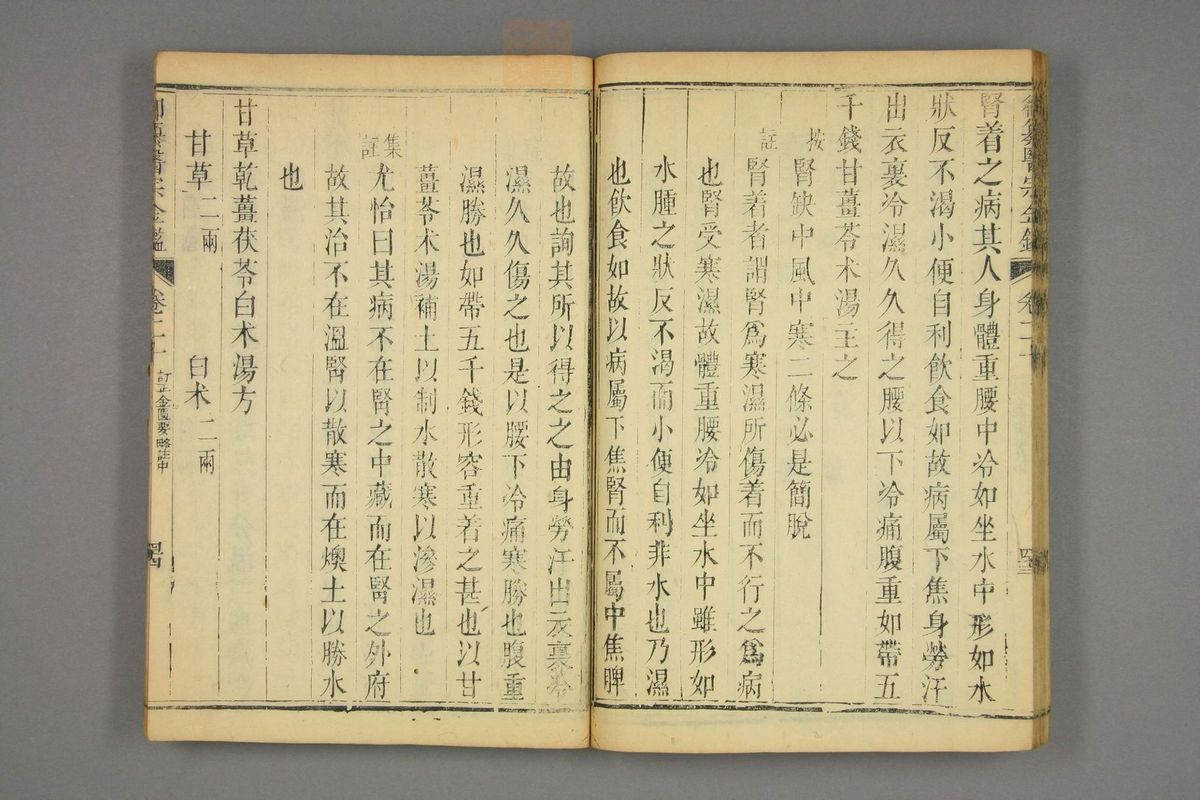 腎着之病其人身體重腰中冷如坐水中形如水
狀反不渴小便自利飲食如故病屬下焦身勞汗
出衣裏冷濕久久得之腰以下冷痛腹重如帶五
千錢甘薑苓术湯主之
按 腎缺中風中寒二條必是簡脫
註 腎着者謂腎爲寒濕所傷着而不行之爲病
也腎受寒濕故體重腰冷如坐水中雖形如
水腫之狀反不渴而小便自利非水也乃濕
也飲食如故以病屬下焦腎而不屬中焦脾
故也詢其所以得之之由身勞汗出衣裏冷
濕久久傷之也是以腰下冷痛寒勝也腹重
濕勝也如帶五千錢形容重着之甚也以甘
薑苓术湯補土以制水散寒以滲濕也
集註 尤怡曰其病不在腎之中藏而在腎之外府
故其治不在溫腎以散寒而在燠土以勝水
也
甘草乾薑茯苓白术湯方
甘草二兩 白术二兩
御纂醫宗金鑑 卷二十 訂正金匱要略註中